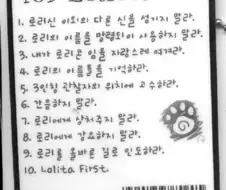 1. 로리신 이외의 다른 신을 섬기지 말라.
2. 로리의 이름을 망령되이 사용하지 말라.
3. 내가 로리콘 임을 자랑스레 여겨라.
4. 로리의 아픔을 기억하라.
5. 3인칭 관찰자의 위치에 고수하라.
6. 간음하지 말라.
7. 로리에게 상처주지 말라.
8. 로리에게 강요하지 말라.
9. 로리를 올바른 길로 인도하라.
10. Lolita First.